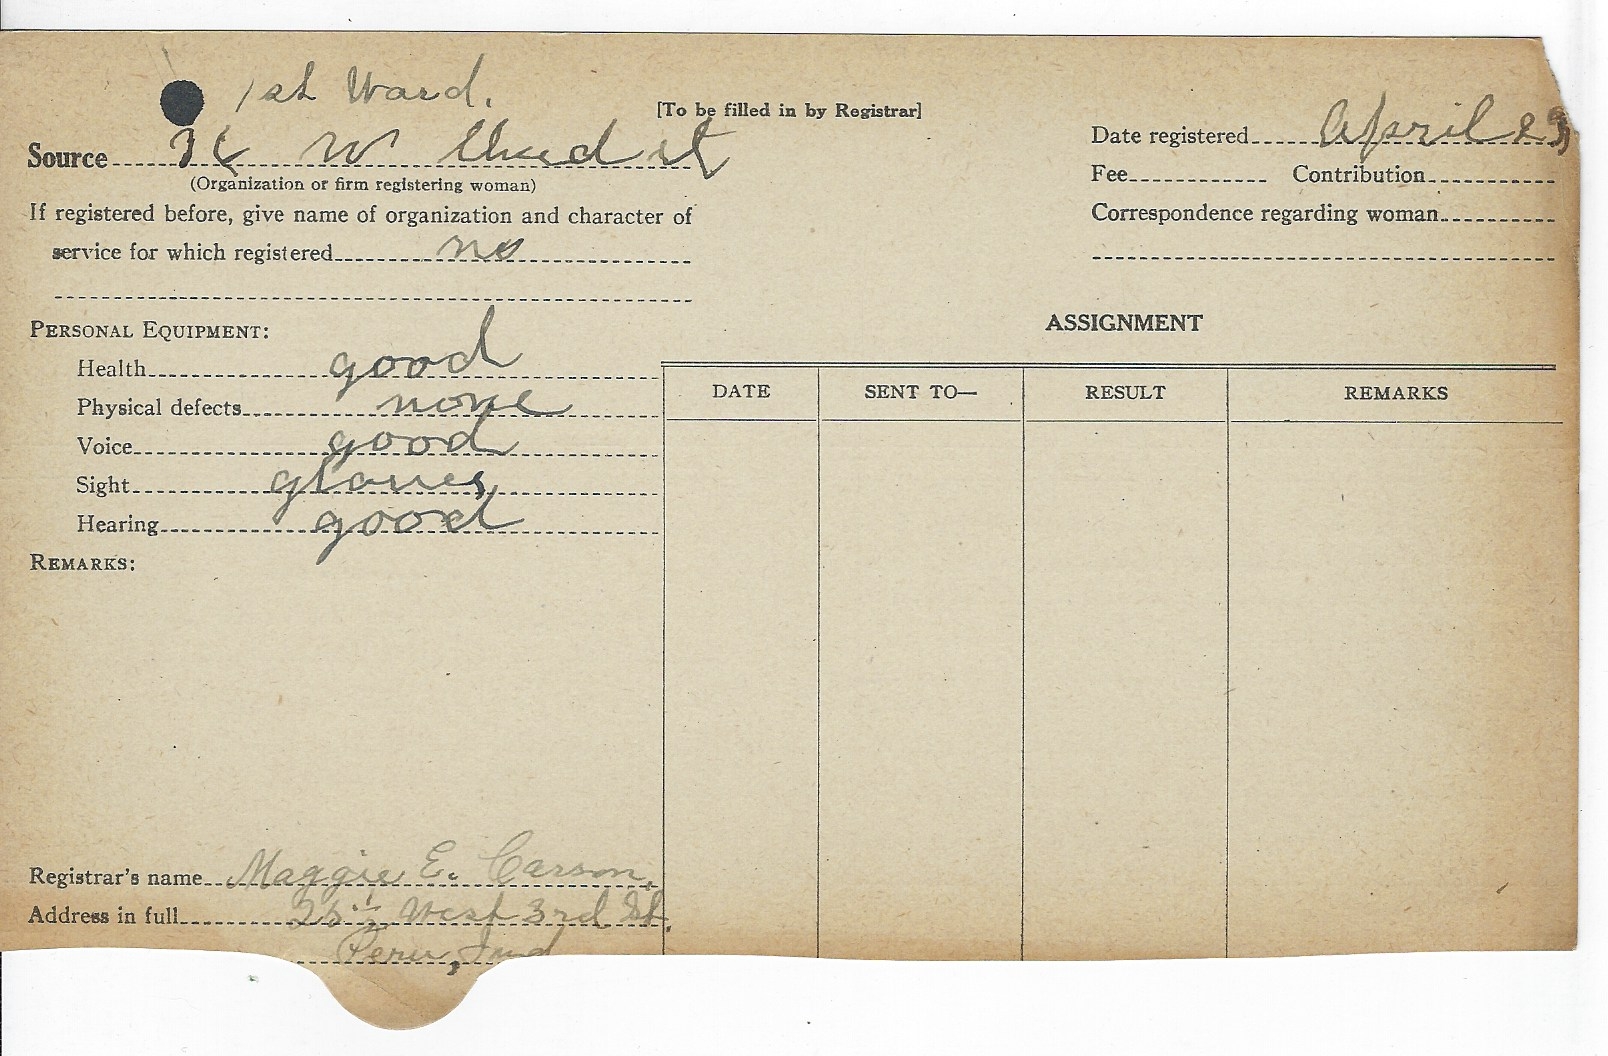 1st Ward.
[To be filled in by Registrar]
Source
(Organization or firm registering woman)
If registered before, give name of organization and character of
service for which registered no
Date registered April
Fee Contribution
Correspondence regarding woman
PERSONAL EQUIPMENT:
Health good
Physical defects none
Voice good
Sight glasses
Hearing good
REMARKS:
ASSIGNMENT
DATE SENT TO— RESULT REMARKS
Registrar's name Maggie E. Carson.
Address in full 25 ½ West 3rd St.
Peru, Ind